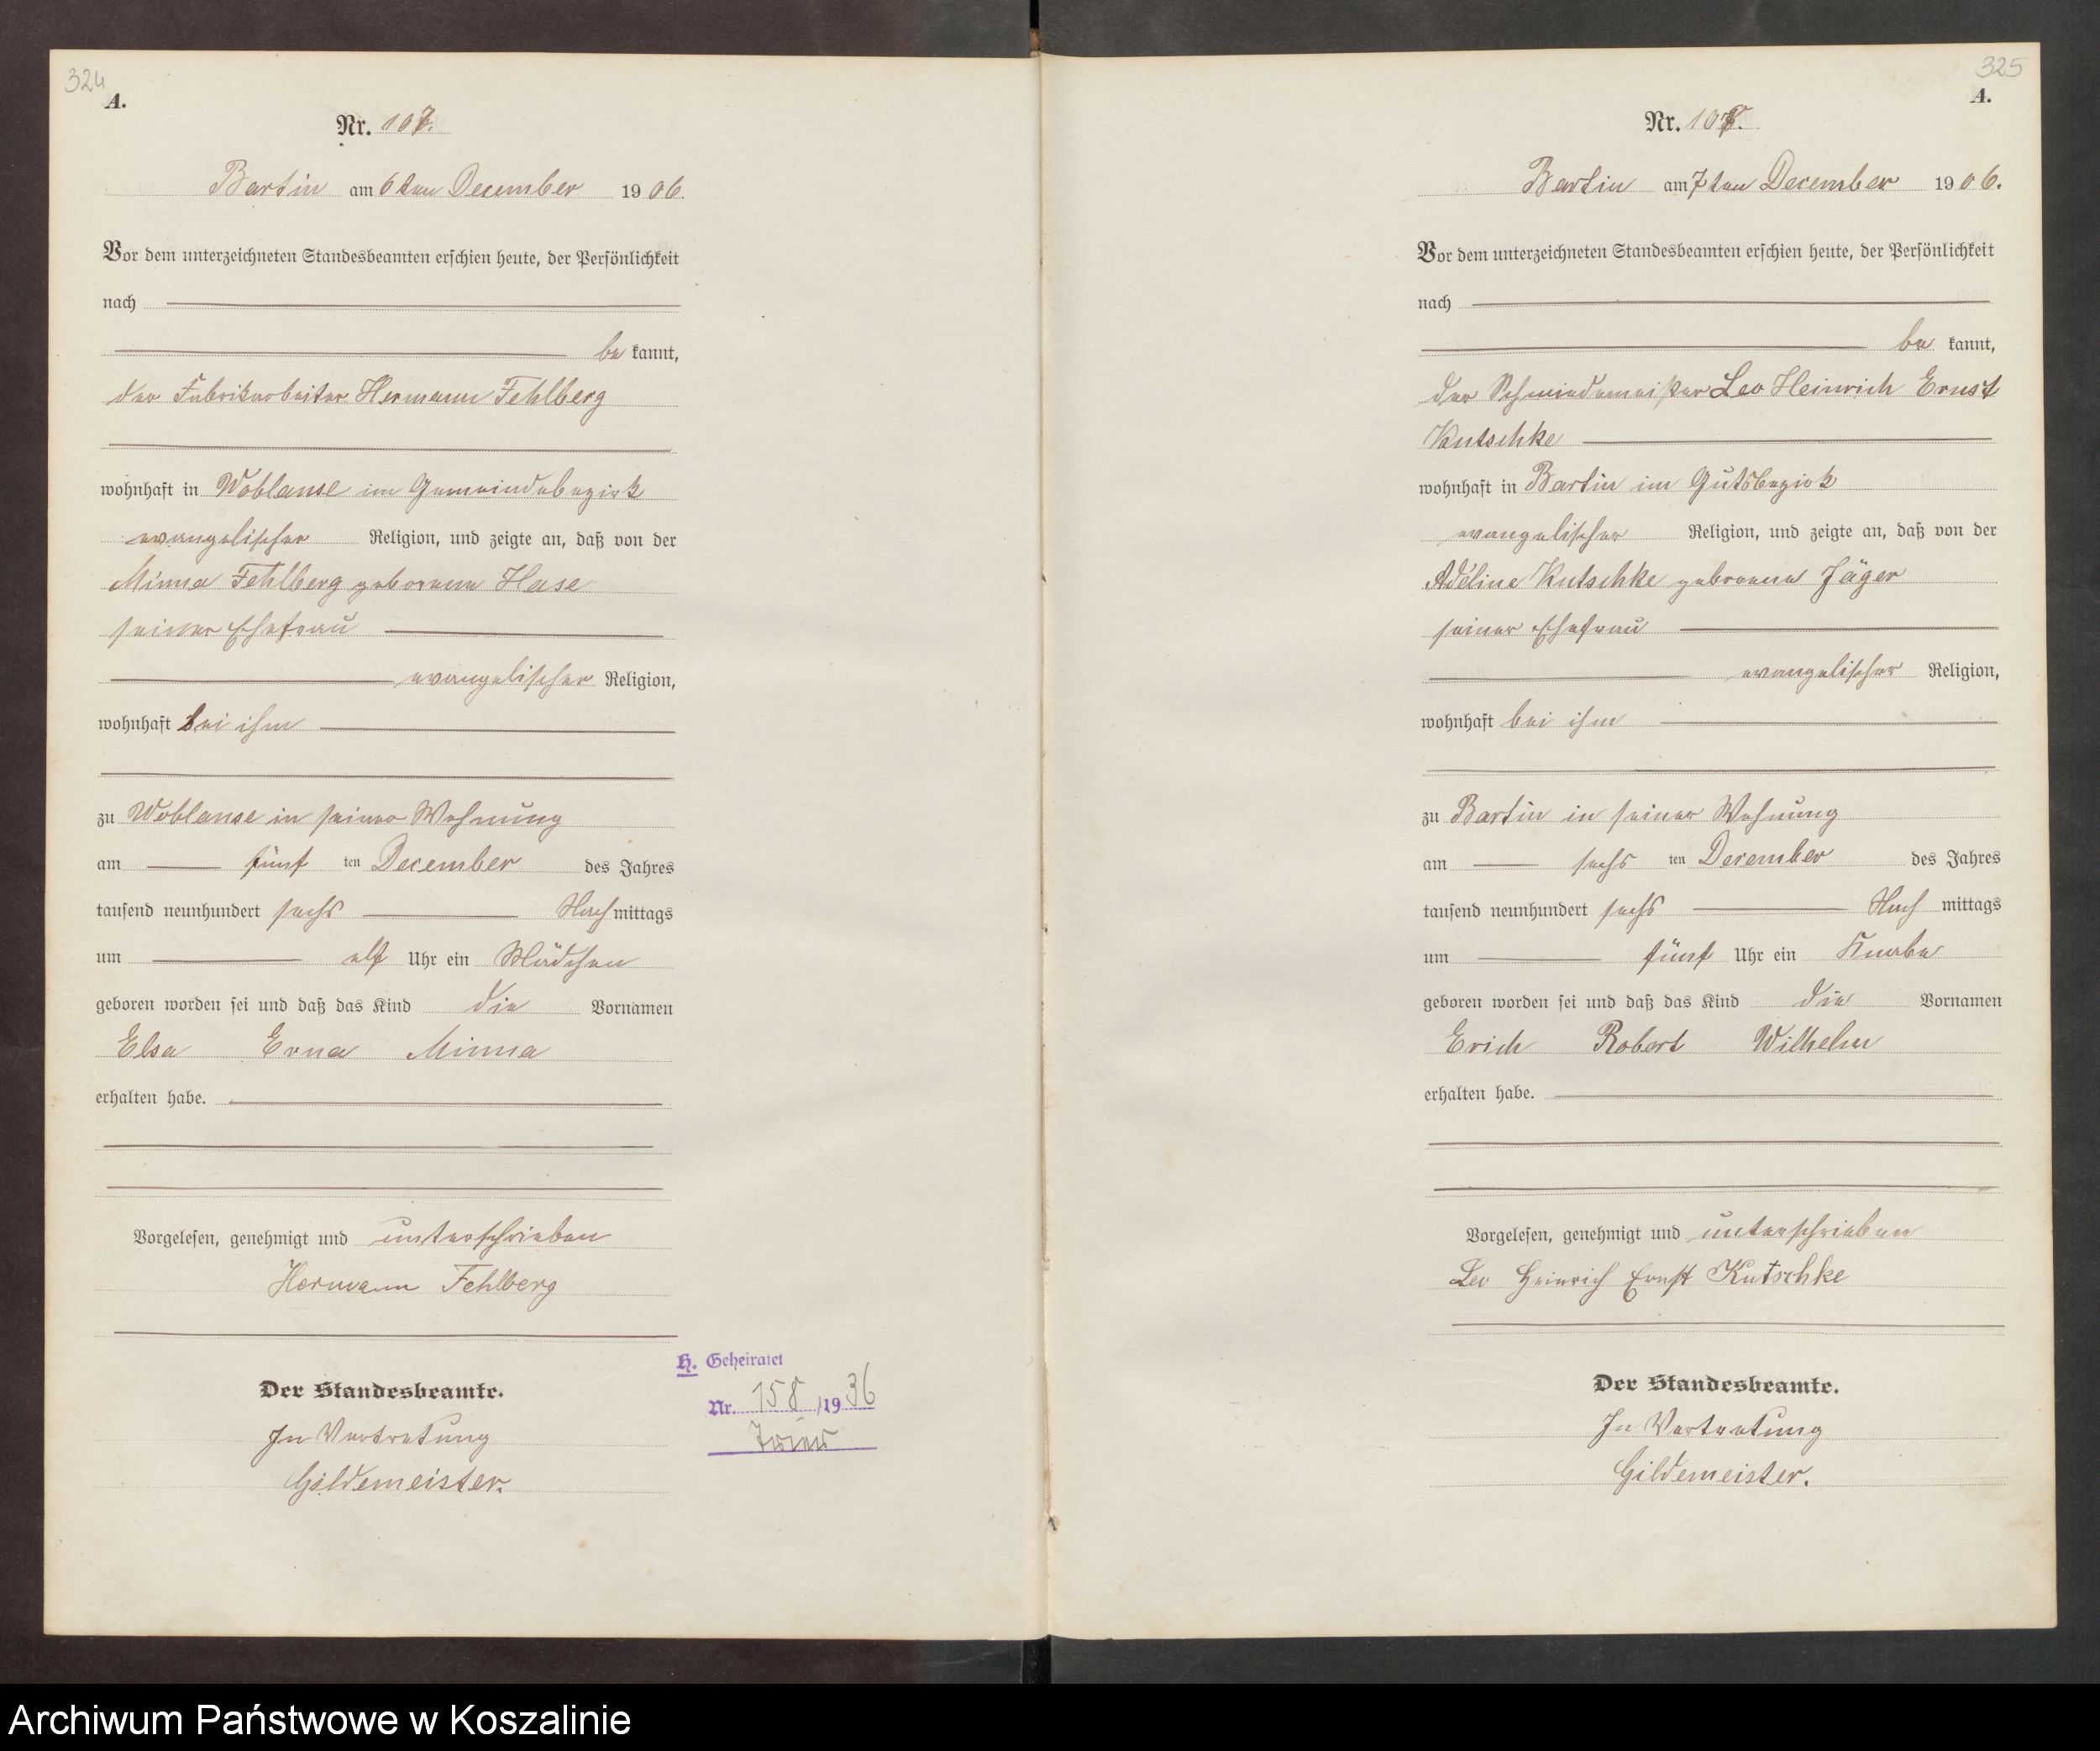 324
A.
Nr. 107.
Bartin am 6ten December 1906.
Vor dem unterzeichneten Standesbeamten erschien heute, der Persönlichkeit
nach
be kannt,
der Fabrikarbeiter Hermann Fehlberg
wohnhaft in Woblanse im Gemeindebezirk
evangelischer Religion, und zeigte an, daß von der
Minna Fehlberg geborene Hase
seiner Ehefrau
evangelischer Religion,
wohnhaft bei ihm
zu Woblanse in seiner Wohnung
am fünf ten December des Jahres
tausend neunhundert sechs Nachmittags
um elf Uhr ein Mädchen
geboren worden sei und daß das Kind die Vornamen
Elsa Erna Minna
erhalten habe.
Vorgelesen, genehmigt und unterschrieben
Hermann Fehlberg
Der Standesbeamte.
In Vertretung
Gildemeister.
H. Geheiratet
Nr. 158/1936
Trier
325
A.
Nr. 108.
Bartin am 7ten December 1906.
Vor dem unterzeichneten Standesbeamten erschien heute, der Persönlichkeit
nach
be kannt,
der Schmiedemeister Leo Heinrich Ernst
Kutschke
wohnhaft in Bartin im Gutsbezirk
evangelischer Religion, und zeigte an, daß von der
Adeline Kutschke geborene Jäger
seiner Ehefrau
evangelischer Religion,
wohnhaft bei ihm
zu Bartin in seiner Wohnung
am sechs ten December des Jahres
tausend neunhundert sechs Nach mittags
um fünf Uhr ein Knabe
geboren worden sei und daß das Kind die Vornamen
Erich Robert Wilhelm
erhalten habe.
Vorgelesen, genehmigt und unterschrieben
Leo Heinrich Ernst Kutschke
Der Standesbeamte.
In Vertretung
Gildemeister.
Archiwum Państwowe w Koszalinie